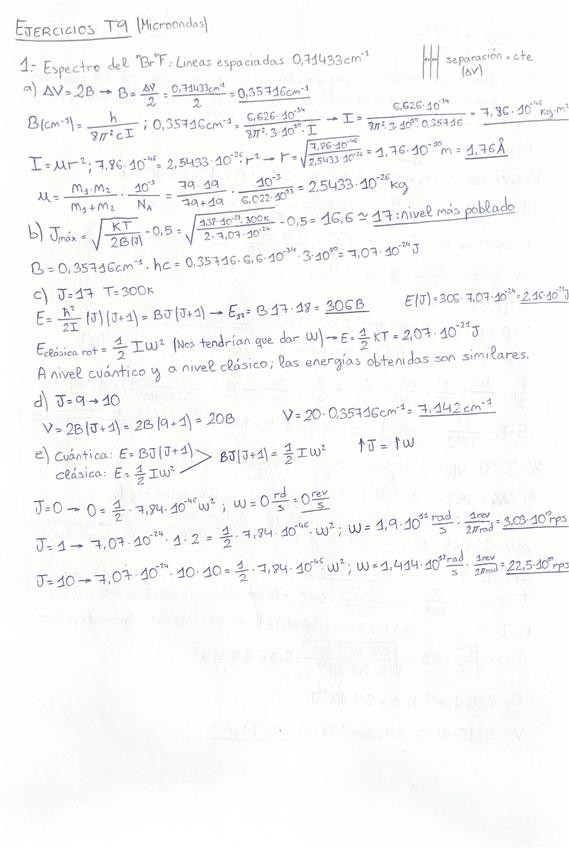 EJERCICIOS T9 (Microondas)
1.- Espectro del "Br"F: Lineas espaciadas 0,71433cm⁻¹
separación = cte (ΔV)
a) ΔV=2B → B= ΔV/2 = 0,71433cm⁻¹/2 = 0,35716cm⁻¹
B(cm⁻¹)= h/8π²cI ; 0,35716cm⁻¹= 6,626·10⁻³⁴/8π²·3·10¹⁰·I → I= 6,626·10⁻³⁴/8π²·3·10¹⁰·0,35716 = 7,86·10⁻⁴⁶ Kg·m²
I=μr²; 7,86·10⁻⁴⁶= 2,5433·10⁻²⁶r² → r= √(7,86·10⁻⁴⁶/2,5433·10⁻²⁶) = 1,76·10⁻¹⁰m = 1,76Å
μ= m₁·m₂/m₁+m₂ · 10⁻³/NA = 79·19/79+19 · 10⁻³/6,022·10²³ = 2,5433·10⁻²⁶Kg
b) Jmáx= √(KT/2B(J)) -0,5= √(1,38·10⁻²³·300K/2·7,07·10⁻²⁴) -0,5= 16,6 ≃ 17: nivel más poblado
B=0,35716cm⁻¹·hc= 0,35716·6,6·10⁻³⁴·3·10¹⁰= 7,07·10⁻²⁴J
c) J=17 T=300K
E= ħ²/2I (J)(J+1)= BJ(J+1) → E₁₇= B17·18= 306B E(J)=306·7,07·10⁻²⁴=2,16·10⁻²¹J
Eclásica rot= 1/2 IW² (Nos tendrían que dar W) → E= 1/2 KT= 2,07·10⁻²¹J
A nivel cuántico y a nivel clásico; las energías obtenidas son similares.
d) J=9 → 10
V=2B(J+1)= 2B(9+1)= 20B V=20·0,35716cm⁻¹= 7,142cm⁻¹
e) Cuántica: E=BJ(J+1)
Clásica: E= 1/2 IW²
BJ(J+1)= 1/2 IW² ↑J = ↑W
J=0 → 0= 1/2 · 7,84·10⁻⁴⁶W² ; W=0 rd/s = 0 rev/s
J=1 → 7,07·10⁻²⁴·1·2= 1/2 ·7,84·10⁻⁴⁶·W² ; W=1,9·10¹¹ rad/s · 1rev/2πrad = 3,03·10¹⁰rps
J=10 → 7,07·10⁻²⁴·10·10= 1/2 ·7,84·10⁻⁴⁶·W² ; W=1,414·10¹²rad/s · 1rev/2πrad = 22,5·10¹⁰rps